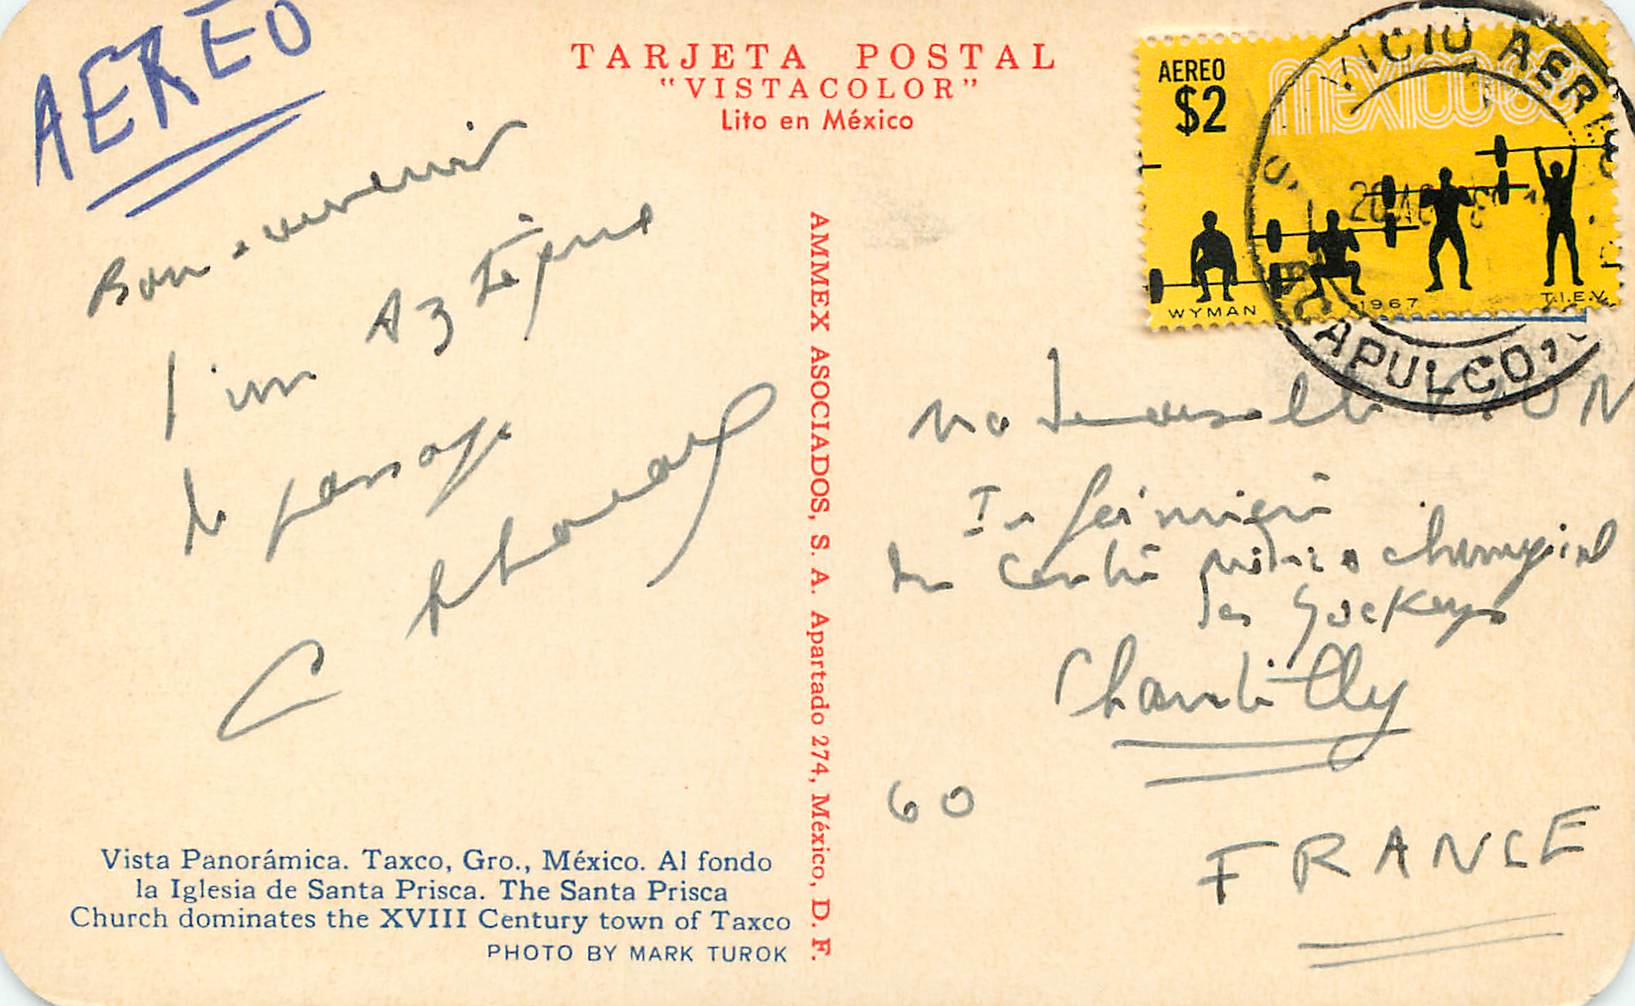 AEREO
TARJETA POSTAL
"VISTACOLOR"
Lito en México
AEREO
$2
MEXICO68
WYMAN
1967
T.I.E.V.
ICIO AER
ACAPULCO
Bon souvenir
d'un Aztèque
de passage
AMMEX ASOCIADOS, S. A. Apartado 274, México, D. F.
Mademoiselle
Infirmière
du Centre médico chirurgical
des Jockeys
Chantilly
60
FRANCE
Vista Panorámica. Taxco, Gro., México. Al fondo
la Iglesia de Santa Prisca. The Santa Prisca
Church dominates the XVIII Century town of Taxco
PHOTO BY MARK TUROK